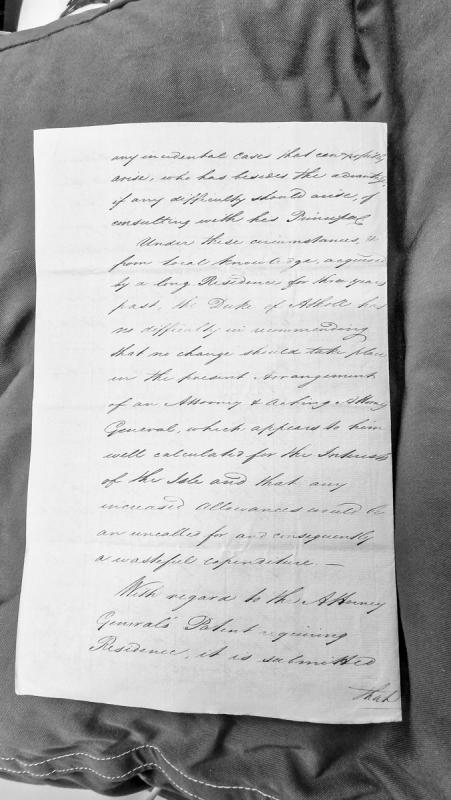 any incidental cases that can possibly
arise, who has besides the advantage,
if any difficulty should arise, of
consulting with his Principal
Under these circumstances, &
from local knowledge, acquired
by a long Residence for three years
past, the Duke of Atholl has
no difficulty in recommending
that no change should take place
in the present Arrangement
of an Attorney & Acting Attorney
General, which appears to him
well calculated for the Interests
of the Isle and that any
increased Allowances would be
an uncalled for and consequently
a wasteful expenditure. —
With regard to the Attorney
General's Patent requiring
Residence, it is submitted
that